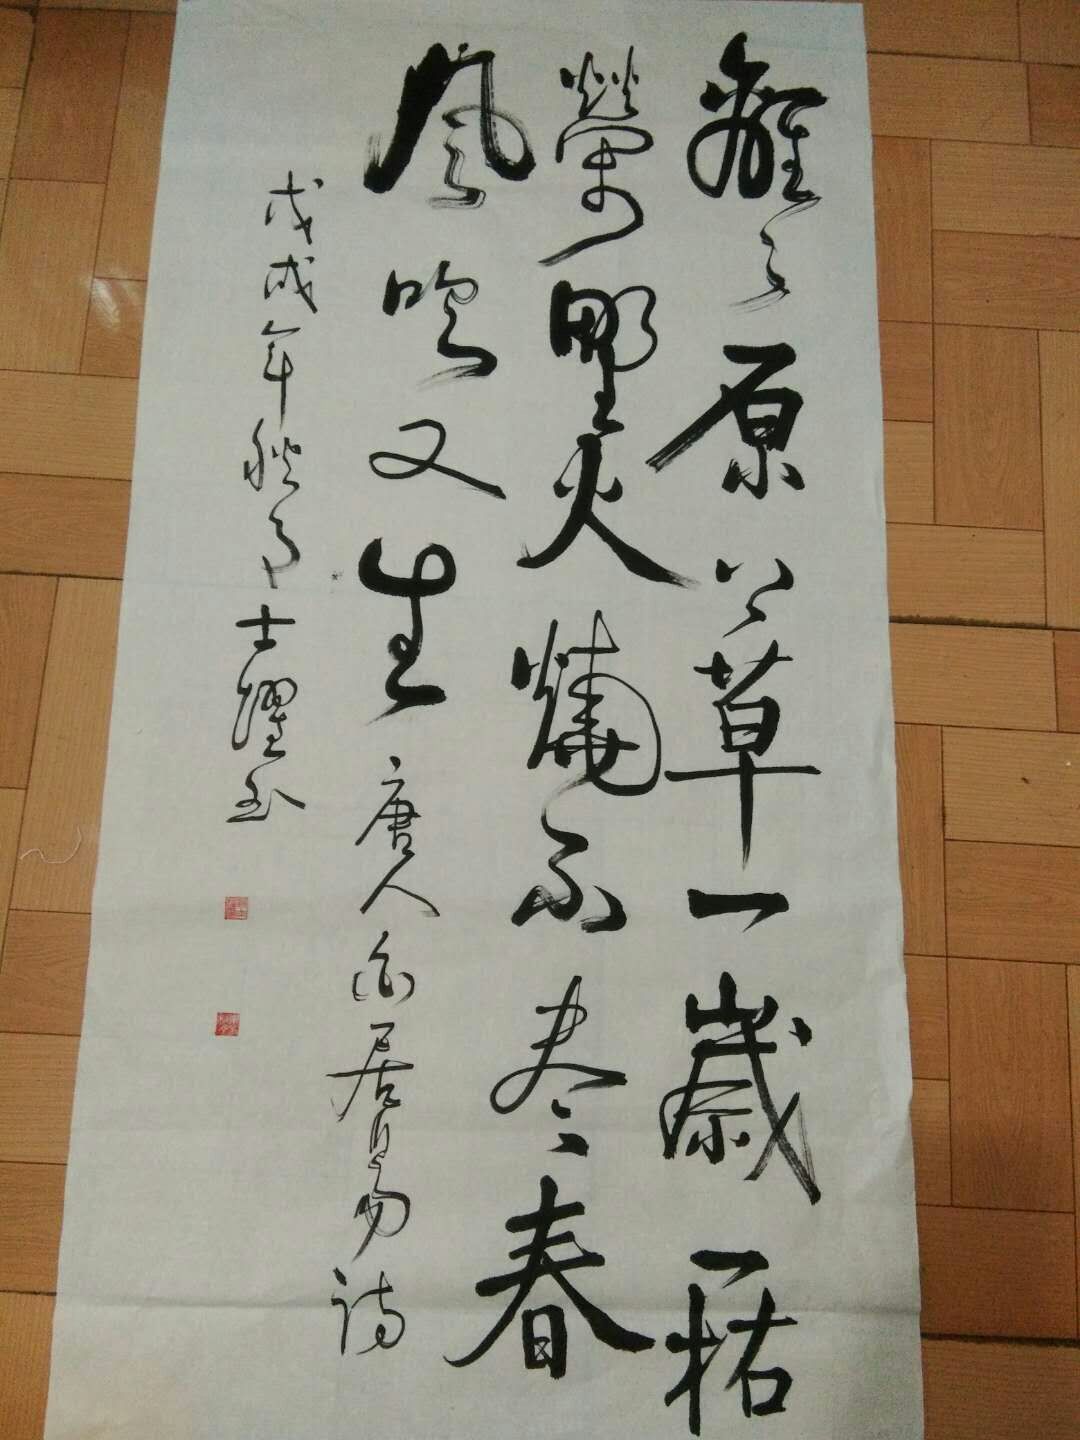 離々原上草一歲一枯
榮野火燒不尽春
風吹又生唐人白居易詩
戊戌年秋月士耀書